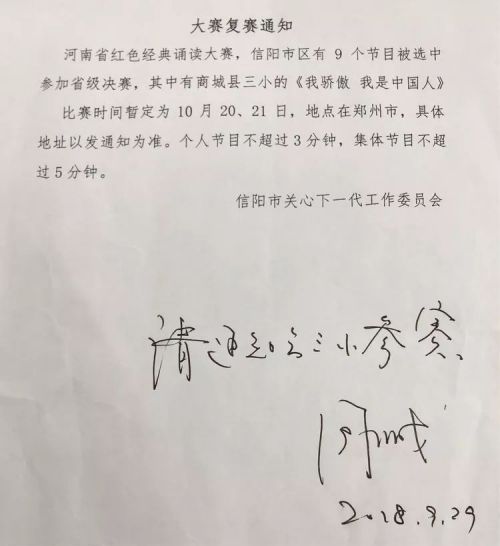 大赛复赛通知
河南省红色经典诵读大赛，信阳市区有 9 个节目被选中
参加省级决赛，其中有商城县三小的《我骄傲 我是中国人》
比赛时间暂定为 10 月 20、21 日，地点在郑州市，具体
地址以发通知为准。个人节目不超过 3 分钟，集体节目不超
过 5 分钟。
信阳市关心下一代工作委员会
请通知三小参赛
2018.9.29